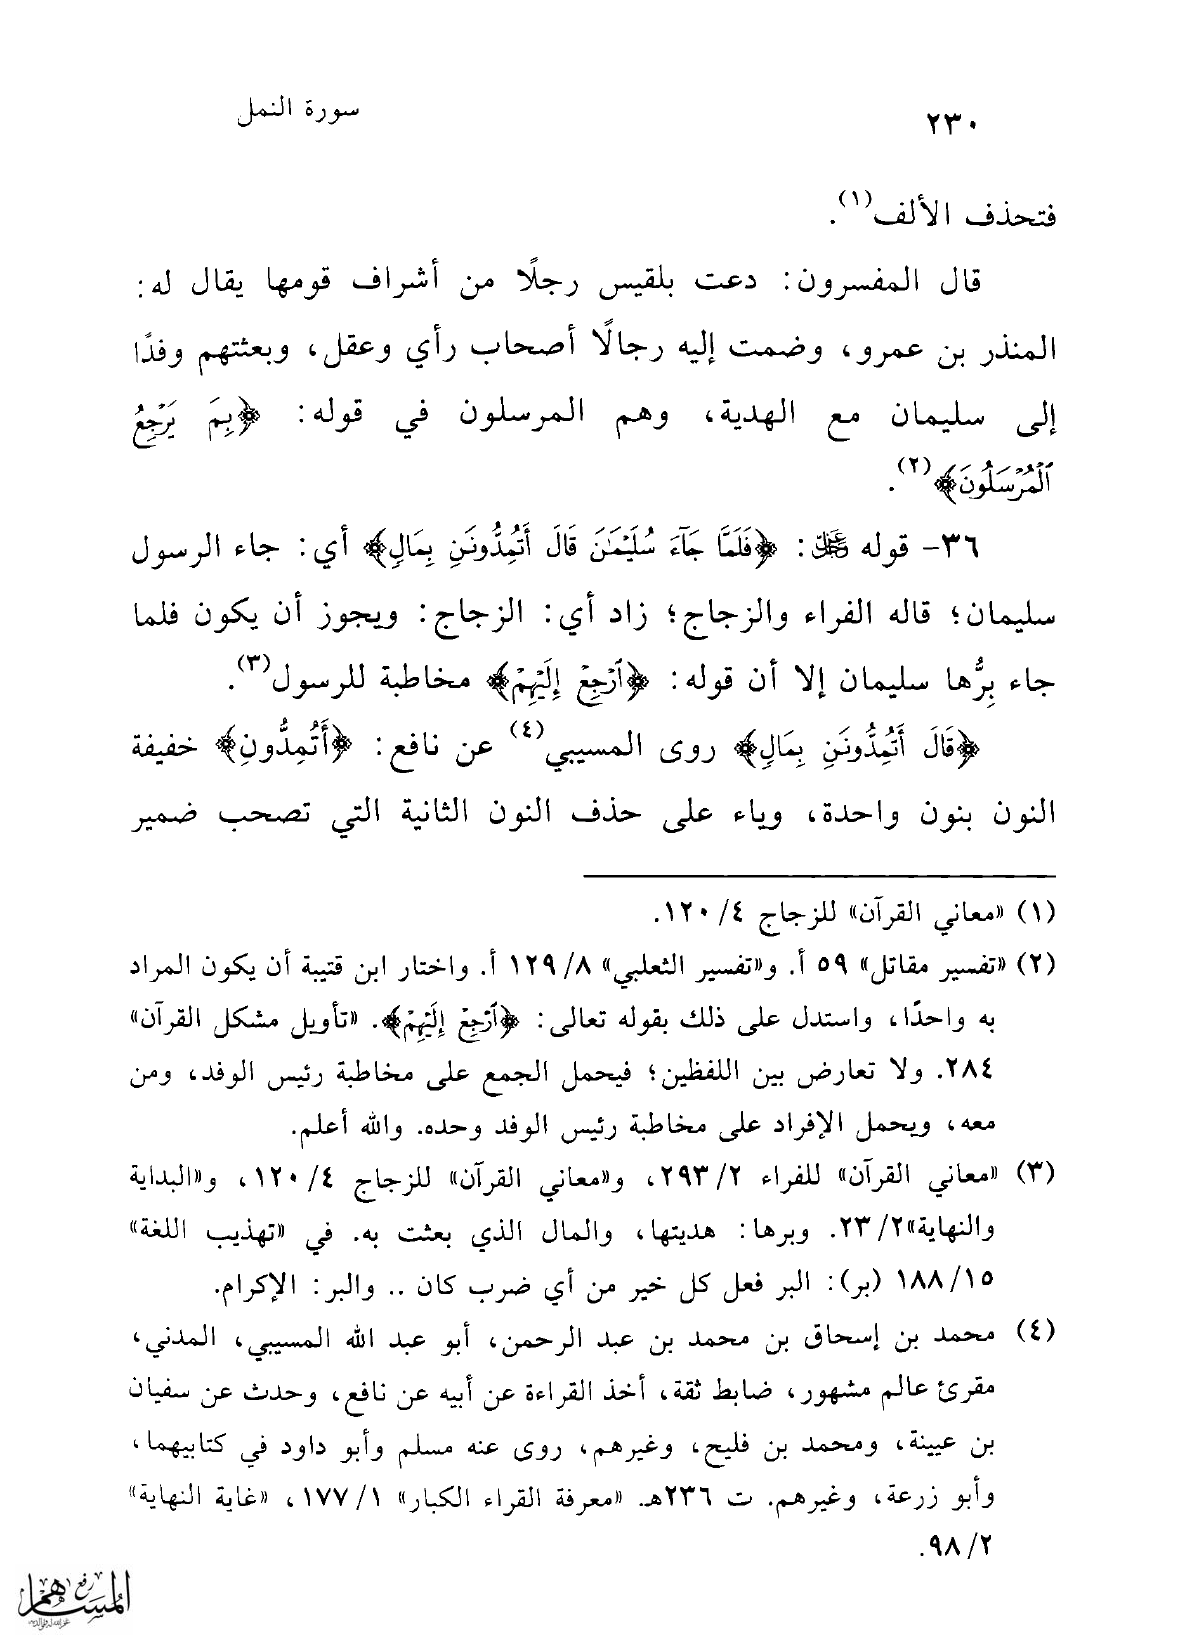 ٢٣٠
سورة النمل
فتحذف الألف(١).
قال المفسرون: دعت بلقيس رجلًا من أشراف قومها يقال له:
المنذر بن عمرو، وضمت إليه رجالًا أصحاب رأي وعقل، وبعثتهم وفدًا
إلى سليمان مع الهدية، وهم المرسلون في قوله: ﴿بِمَ يَرْجِعُ
ٱلْمُرْسَلُونَ﴾(٢).
٣٦- قوله ﷿: ﴿فَلَمَّا جَآءَ سُلَيْمَٰنَ قَالَ أَتُمِدُّونَنِ بِمَالٍ﴾ أي: جاء الرسول
سليمان؛ قاله الفراء والزجاج؛ زاد أي: الزجاج: ويجوز أن يكون فلما
جاء بِرُّها سليمان إلا أن قوله: ﴿ٱرْجِعْ إِلَيْهِمْ﴾ مخاطبة للرسول(٣).
﴿قَالَ أَتُمِدُّونَنِ بِمَالٍ﴾ روى المسيبي(٤) عن نافع: ﴿أَتُمِدُّونِ﴾ خفيفة
النون بنون واحدة، وياء على حذف النون الثانية التي تصحب ضمير
(١) «معاني القرآن» للزجاج ٤/١٢٠.
(٢) «تفسير مقاتل» ٥٩ أ. و«تفسير الثعلبي» ٨/١٢٩ أ. واختار ابن قتيبة أن يكون المراد
به واحدًا، واستدل على ذلك بقوله تعالى: ﴿ٱرْجِعْ إِلَيْهِمْ﴾. «تأويل مشكل القرآن»
٢٨٤. ولا تعارض بين اللفظين؛ فيحمل الجمع على مخاطبة رئيس الوفد، ومن
معه، ويحمل الإفراد على مخاطبة رئيس الوفد وحده. والله أعلم.
(٣) «معاني القرآن» للفراء ٢/٢٩٣، و«معاني القرآن» للزجاج ٤/١٢٠، و«البداية
والنهاية»٢/٢٣. وبرها: هديتها، والمال الذي بعثت به. في «تهذيب اللغة»
١٥/١٨٨ (بر): البر فعل كل خير من أي ضرب كان .. والبر: الإكرام.
(٤) محمد بن إسحاق بن محمد بن عبد الرحمن، أبو عبد الله المسيبي، المدني،
مقرئ عالم مشهور، ضابط ثقة، أخذ القراءة عن أبيه عن نافع، وحدث عن سفيان
بن عيينة، ومحمد بن فليح، وغيرهم، روى عنه مسلم وأبو داود في كتابيهما،
وأبو زرعة، وغيرهم. ت ٢٣٦هـ. «معرفة القراء الكبار» ١/١٧٧، «غاية النهاية»
٢/٩٨.